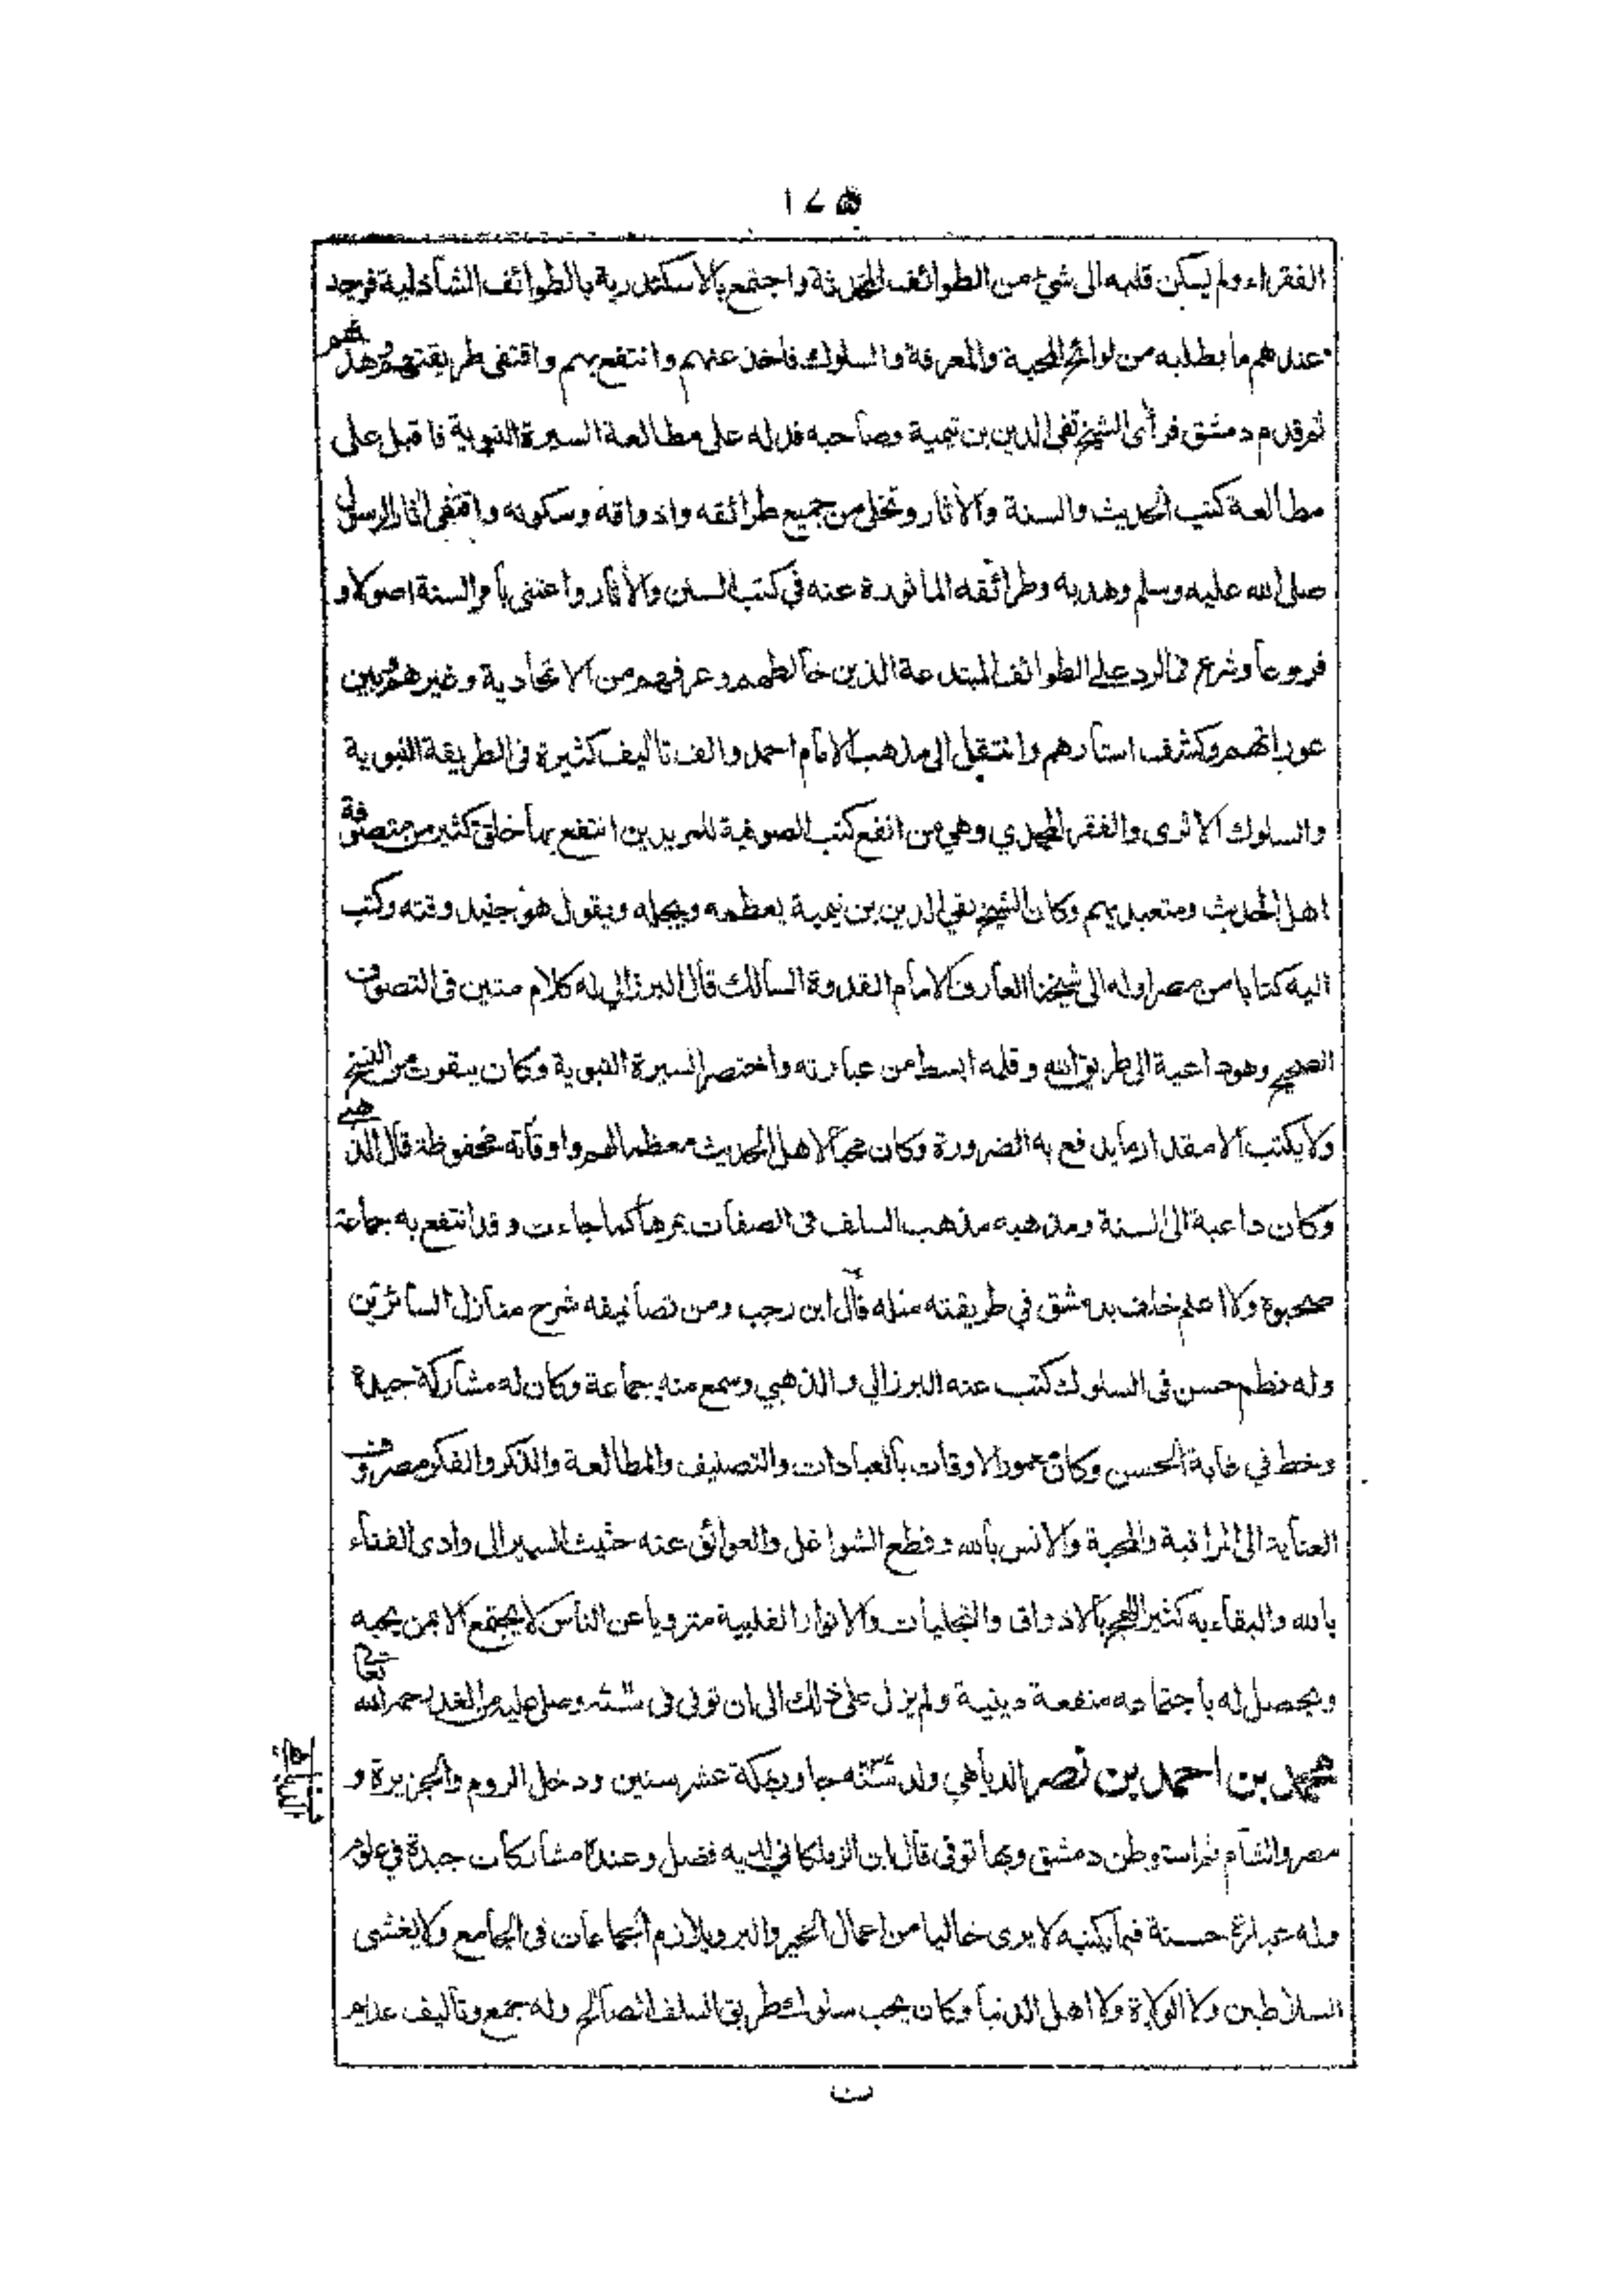 ١٧٥
الفقراء ولم يسكن قلبه الى شئ من الطوائف المحدثة واجتمع بالاسكندرية بالطوائف الشاذلية فوجد
عندهم ما يطلبه من لوائح المحبة والمعرفة والسلوك فاخذ عنهم وانتفع بهم واقتفى طريقتهم وهديهم
ثم قدم دمشق فرأى الشيخ تقي الدين بن تيمية وصاحبه فدله على مطالعة السيرة النبوية فاقبل على
مطالعة كتب الحديث والسنة والآثار وتخلى من جميع طرائقه واذواقه وسكونه واقتفى اثار الرسول
صلى الله عليه وسلم وهديه وطرائقه الماثورة عنه في كتب السنن والآثار واعتنى بأمر السنة اصولا و
فروعاً وشرع في الرد على الطوائف المبتدعة الذين خالطهم وعرفهم من الاتحادية وغيرهم وبين
عوراتهم وكشف استارهم وانتقل الى مذهب الامام احمد والف تاليف كثيرة في الطريقة النبوية
والسلوك الاثرى والفقر المحمدي وهي من انفع كتب الصوفية للمريدين انتفع بها خلق كثير من متصوفة
اهل الحديث ومتعبديهم وكان الشيخ تقي الدين بن تيمية يعظمه ويجله ويقول هو جنيد وقته وكتب
اليه كتابا من مصر اوله الى شيخنا العارف الامام القدوة السالك قال البرزالي له كلام متين في التصوف
الصحيح وهو داعية الى طريق الله وقلمه ابسط من عبارته واختصر السيرة النبوية وكان يتقوت من النسخ
ولا يكتب الا مقدار ما يدفع به الضرورة وكان محباً لاهل الحديث معظما لهم واوقاته محفوظة قال الذهبي
وكان داعية الى السنة ومذهبه مذهب السلف في الصفات يمرها كما جاءت وقد انتفع به جماعة
صحبوه ولا اعلم خلف بدمشق في طريقته مثله قال ابن رجب ومن تصانيفه شرح منازل السائرين
وله نظم حسن في السلوك كتب عنه البرزالي والذهبي وسمع منه جماعة وكان له مشاركة جيدة
وخط في غاية الحسن وكان معمور الاوقات بالعبادات والتصنيف والمطالعة والذكر والفكر مصروف
العناية الى المراقبة والمحبة والانس بالله وقطع الشواغل والعوائق عنه حثيث السير الى وادى الفناء
بالله والبقاء به كثير اللهج بالاذواق والتجليات والانوار القلبية منزويا عن الناس لا يجتمع الا بمن يحبه
ويحصل له باجتماعه منفعة دينية ولم يزل على ذلك الى ان توفى في وصلى عليه من الغد رحمه الله تعالى
محمد بن احمد بن نصر الدباهي ولد جاور بمكة عشر سنين ودخل الروم والجزيرة و
الدباهي
مصر والشام ثم استوطن دمشق وبها توفى قال ابن الزملكاني لديه فضل وعنده مشاركات جيدة في علوم
وله عبارة حسنة فيما يكتبه لا يرى خاليا من اعمال الخير والبر ويلازم الجماعات في الجامع ولا يغشى
السلاطين ولا الولاة ولا اهل الدنيا وكان يحب سلوك طريق السلف الصالح وله جمع وتاليف عدم